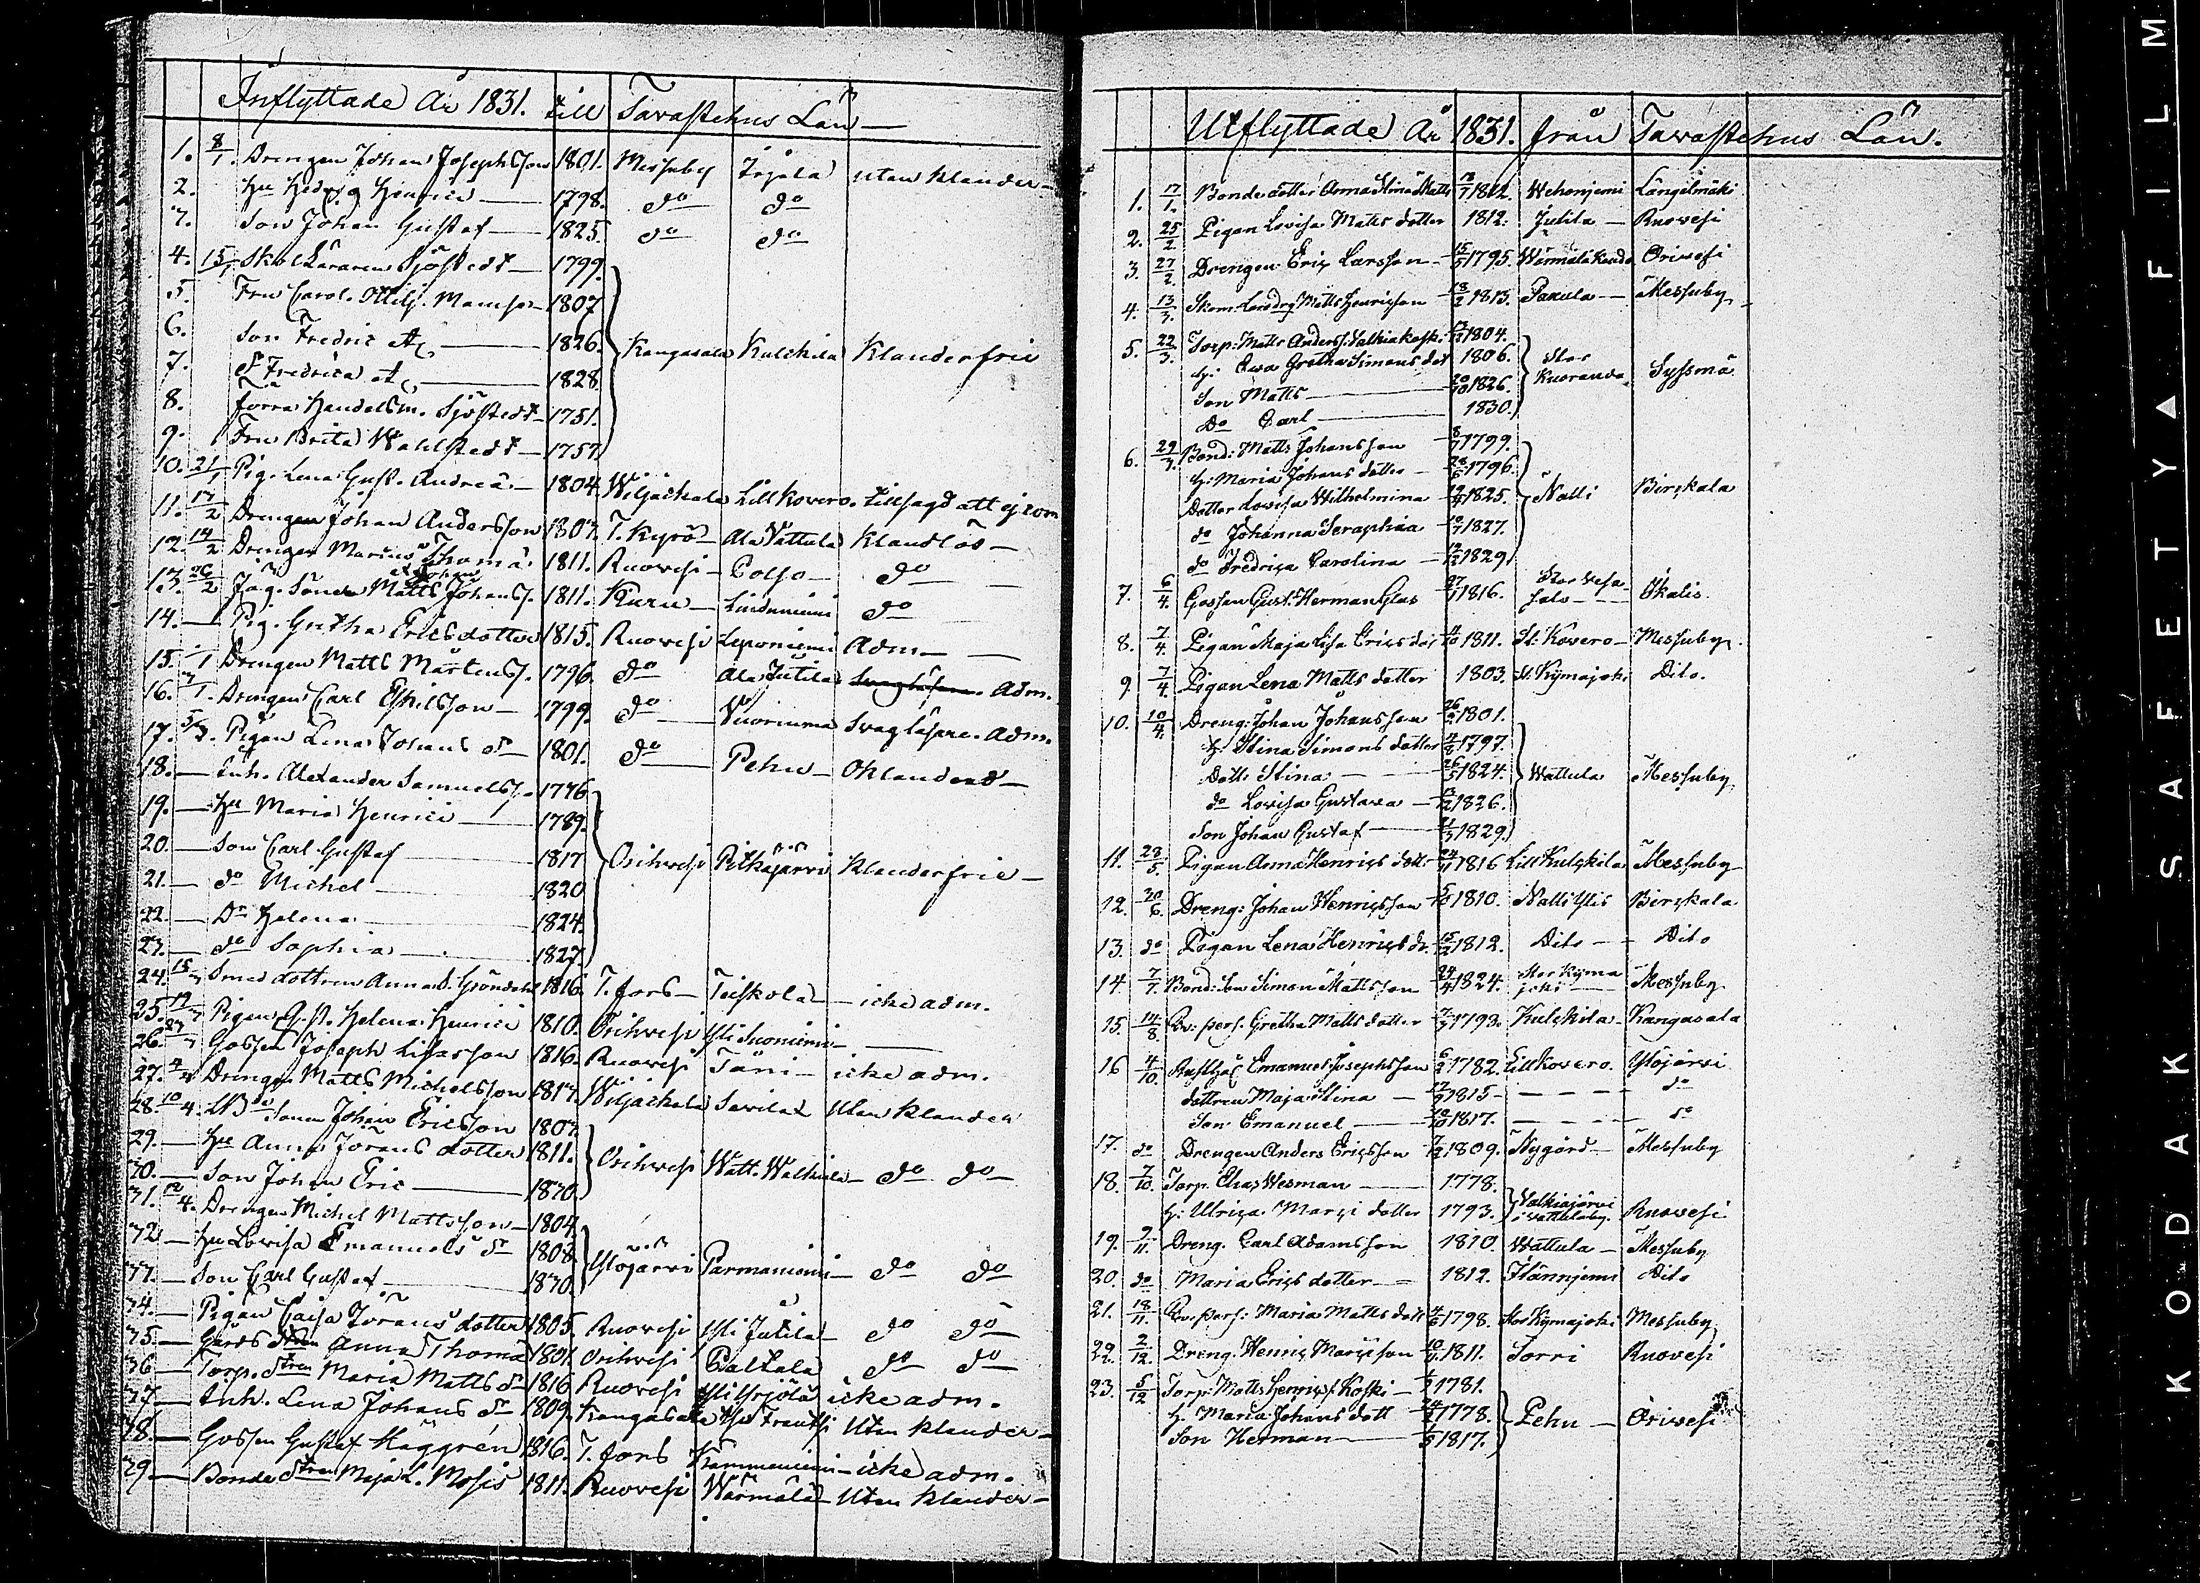 Inflyttade År 1831. till Tavastehus Län
1. 8/1. Drengen Johan Josephsson 1801. Messuby Irjala utan klander
2. Hu Hedvig Henrici 1798. do do
3. Son Johan Gustaf 1825. do do
4. 15/1 Skol Läraren Sjöstedt 1799.
5. Fru Carol. Ottilj. 1807
6. Son Fredric 1826. Kangasala Kulckila Klanderfrie
7. Dr Fredrica 1828
8. förra Handelsm. Sjöstedt 1751.
9. Fru Brita Wahlstedt 1757
10. 21/1 Pig. Lena Gust. Andreæ 1804. Wiljackala Lill Kovero. tillsagd att ej
11. 17/2 Drengen Johan Andersson 1807. T. Kyrö Ala Vattula Klandlös
12. 14/2 Drengen Marcus Thomæ 1811. Ruovesi Pohjo do
13. 26/2 Jäg. Sonen Matts Johans. 1811. Kuru Linduniemi do
14. Pig. Gretha Ericsdotter 1815. Ruovesi Leponiemi Adm
15. Drengen Matts Mårtens. 1796. do Ala Jutila Adm.
16. Drengen Carl Eskilsson 1799. do Vuorenma Svagläsare. Adm.
17. 5/3. Pigan Lena Johans dr 1801. do Pehu Oklandrad
18. Inh. Alexander Samuels. 1776
19. Hu Maria Henrici 1789.
20. Son Carl Gustaf 1817 Orihvesi Pitkäjärvi Klanderfrie
21. do Michel 1820
22. Dr Helena 1824.
23. do Sophia 1827.
24. 15/3 Smed dottren Anna S. Gröndahl 1816. T. fors Teiskola icke adm.
25. 19/3 Pigan G. St. Helena Henrici 1810. Orihvesi Yli Suoniemi
26. 27/3 Gossen Joseph Lisasson 1816. Ruovesi Täni icke adm.
27. Drengen Matts Michelsson 1817. Wiljackala Savila Utan Klander
28. 10/4 Sonen Johan Ericsson 1807.
29. Hu Anna Jörans dotter 1811. Orihvesi Watt. Walkiala do do
30. Son Johan Eric 1830.
31. 10/4. Drengen Michel Mattsson 1804.
32. Hu Lovisa Emanuels dr 1808. Ylöjärvi Parmaniemi do do
33. Son Carl Gustaf 1830.
34. Pigan Caisa Jörans dotter 1805. Ruovesi Yli Jutila do do
35. Gårds dtren Anna Thomæ 1801. Orihvesi Paltala do do
36. Torp. dtren Maria Matts dr 1816. Ruovesi icke adm.
37. Inh. Lena Johans dr 1809. Kangasala Utan klander
38. Gossen Gustaf Häggrén 1816. T. fors Kämmenniemi icke adm.
39. Bonde dtren Maja L. Mosis 1811. Ruovesi Wärmälä Utan Klander
Utflyttade År 1831. från Tavastehus Län.
1. 17/1. Bonde dotter Anna Stina Matts 1812. Wehonjemi Längelmäki
2. 25/2. Pigan Lovisa Matts dotter 1812. Jutila Ruovesi
3. 27/2. Drengen Eric Larsson 15/5 1795. Wärmälä Orivesi
4. 13/3. Matts Henricsson 18/2 1813. Paxula Messuby
5. 22/3. Torp: Matts Anders. Salkiakoski 1804.
h: Ewa Gretha Simons dot 1806. Stor
Son Matts 20/10 1826. Kuoranda Syssmä
Do Carl 1830.
6. 29/3. Bond: Matts Johansson 8/7 1799.
h: Maria Johans dotter 28/6 1796.
Dotter Lovisa Wilhelmina 1825. Natti Birckala
do Johanna Seraphia 1827.
do Fredrica Carolina 1829.
7. 6/4. Gossen Gust. Herman Glas 1816. Stor Vesa
salo Ikalis.
8. 7/4. Pigan Maja Lisa Erics dot 1811. St. Kovero Messuby.
9. 7/4. Pigan Lena Matts dotter 1803. St Kymajoki Dito.
10. 10/4. Dreng: Johan Johansson 26/2 1801.
h: Stina Simons dotter 1797.
Dott. Stina 26/5 1824. Wattula Messuby
do Lovisa Gustava 1826.
Son Johan Gustaf 1829.
11. 28/5. Pigan Anna Henrics dottr 1816 Lill Kulckila Messuby
12. 20/6. Dreng: Johan Henricsson 1810. Natti Ylis Birckala
13. do Pigan Lena Henrics dr. 15/2 1812. Dito Dito
14. 7/7. Bond: Son Simon Mattsson 24/4 1824. Stor Kyma
joki Messuby
15. 14/8. Qv: pers. Gretha Matts dotter 1793. Kulckila Kangasala
16 4/10. Rusthål. Emanuel Josephsson 1782. Lill Kovero. Ylöjärvi
dottren Maja Stina 1815 do
Son Emanuel 1817. do
17. do Drengen Anders Ericsson 1809. Nygård Messuby
18. 7/10. Torp. Elias Wesman 1778. Valkiajärvi
h: Ulrica Marci dotter 1793. i Wattulaby. Ruovesi
19. 9/11. Dreng. Carl Adamsson 1810. Wattula Messuby
20. do Maria Erics dotter 1812. Dito
21. 18/11. Qv. pers: Maria Matts dott 1798. Stor Kymajoki Messuby
22. 2/12. Dreng. Henric Marcisson 1811. Sorri Ruovesi
23. 5/12 Torp: Matts Henrics. Koski 1781.
h. Maria Johans dott 1778. Pehu Orivesi
Son Herman 1817.
KODAK SAFETY FILM